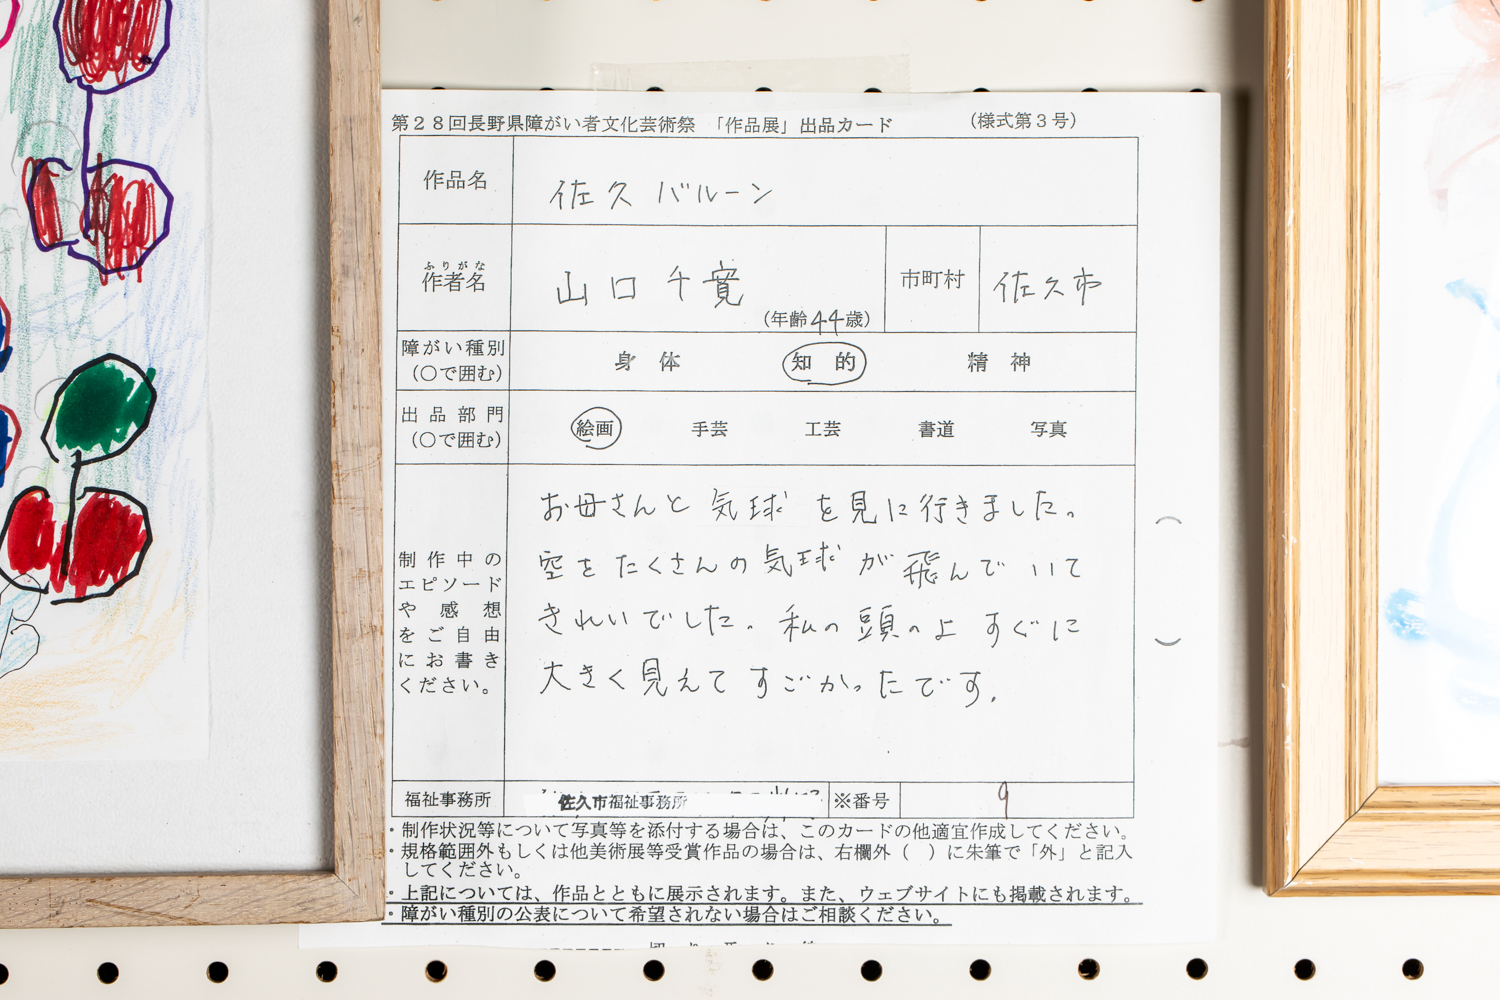 第２８回長野県障がい者文化芸術祭 「作品展」出品カード （様式第３号）
作品名 佐久バルーン
ふりがな
作者名 山口千寛 （年齢44歳） 市町村 佐久市
障がい種別 身体 知的 精神
（○で囲む）
出品部門 絵画 手芸 工芸 書道 写真
（○で囲む）
お母さんと気球を見に行きました。
空をたくさんの気球が飛んでいて
きれいでした。私の頭の上すぐに
大きく見えてすごかったです。
制作中の
エピソード
や感想
をご自由
にお書き
ください。
福祉事務所 佐久市福祉事務所 ※番号 9
・制作状況等について写真等を添付する場合は、このカードの他適宜作成してください。
・規格範囲外もしくは他美術展等受賞作品の場合は、右欄外（　）に朱筆で「外」と記入
してください。
・上記については、作品とともに展示されます。また、ウェブサイトにも掲載されます。
・障がい種別の公表について希望されない場合はご相談ください。